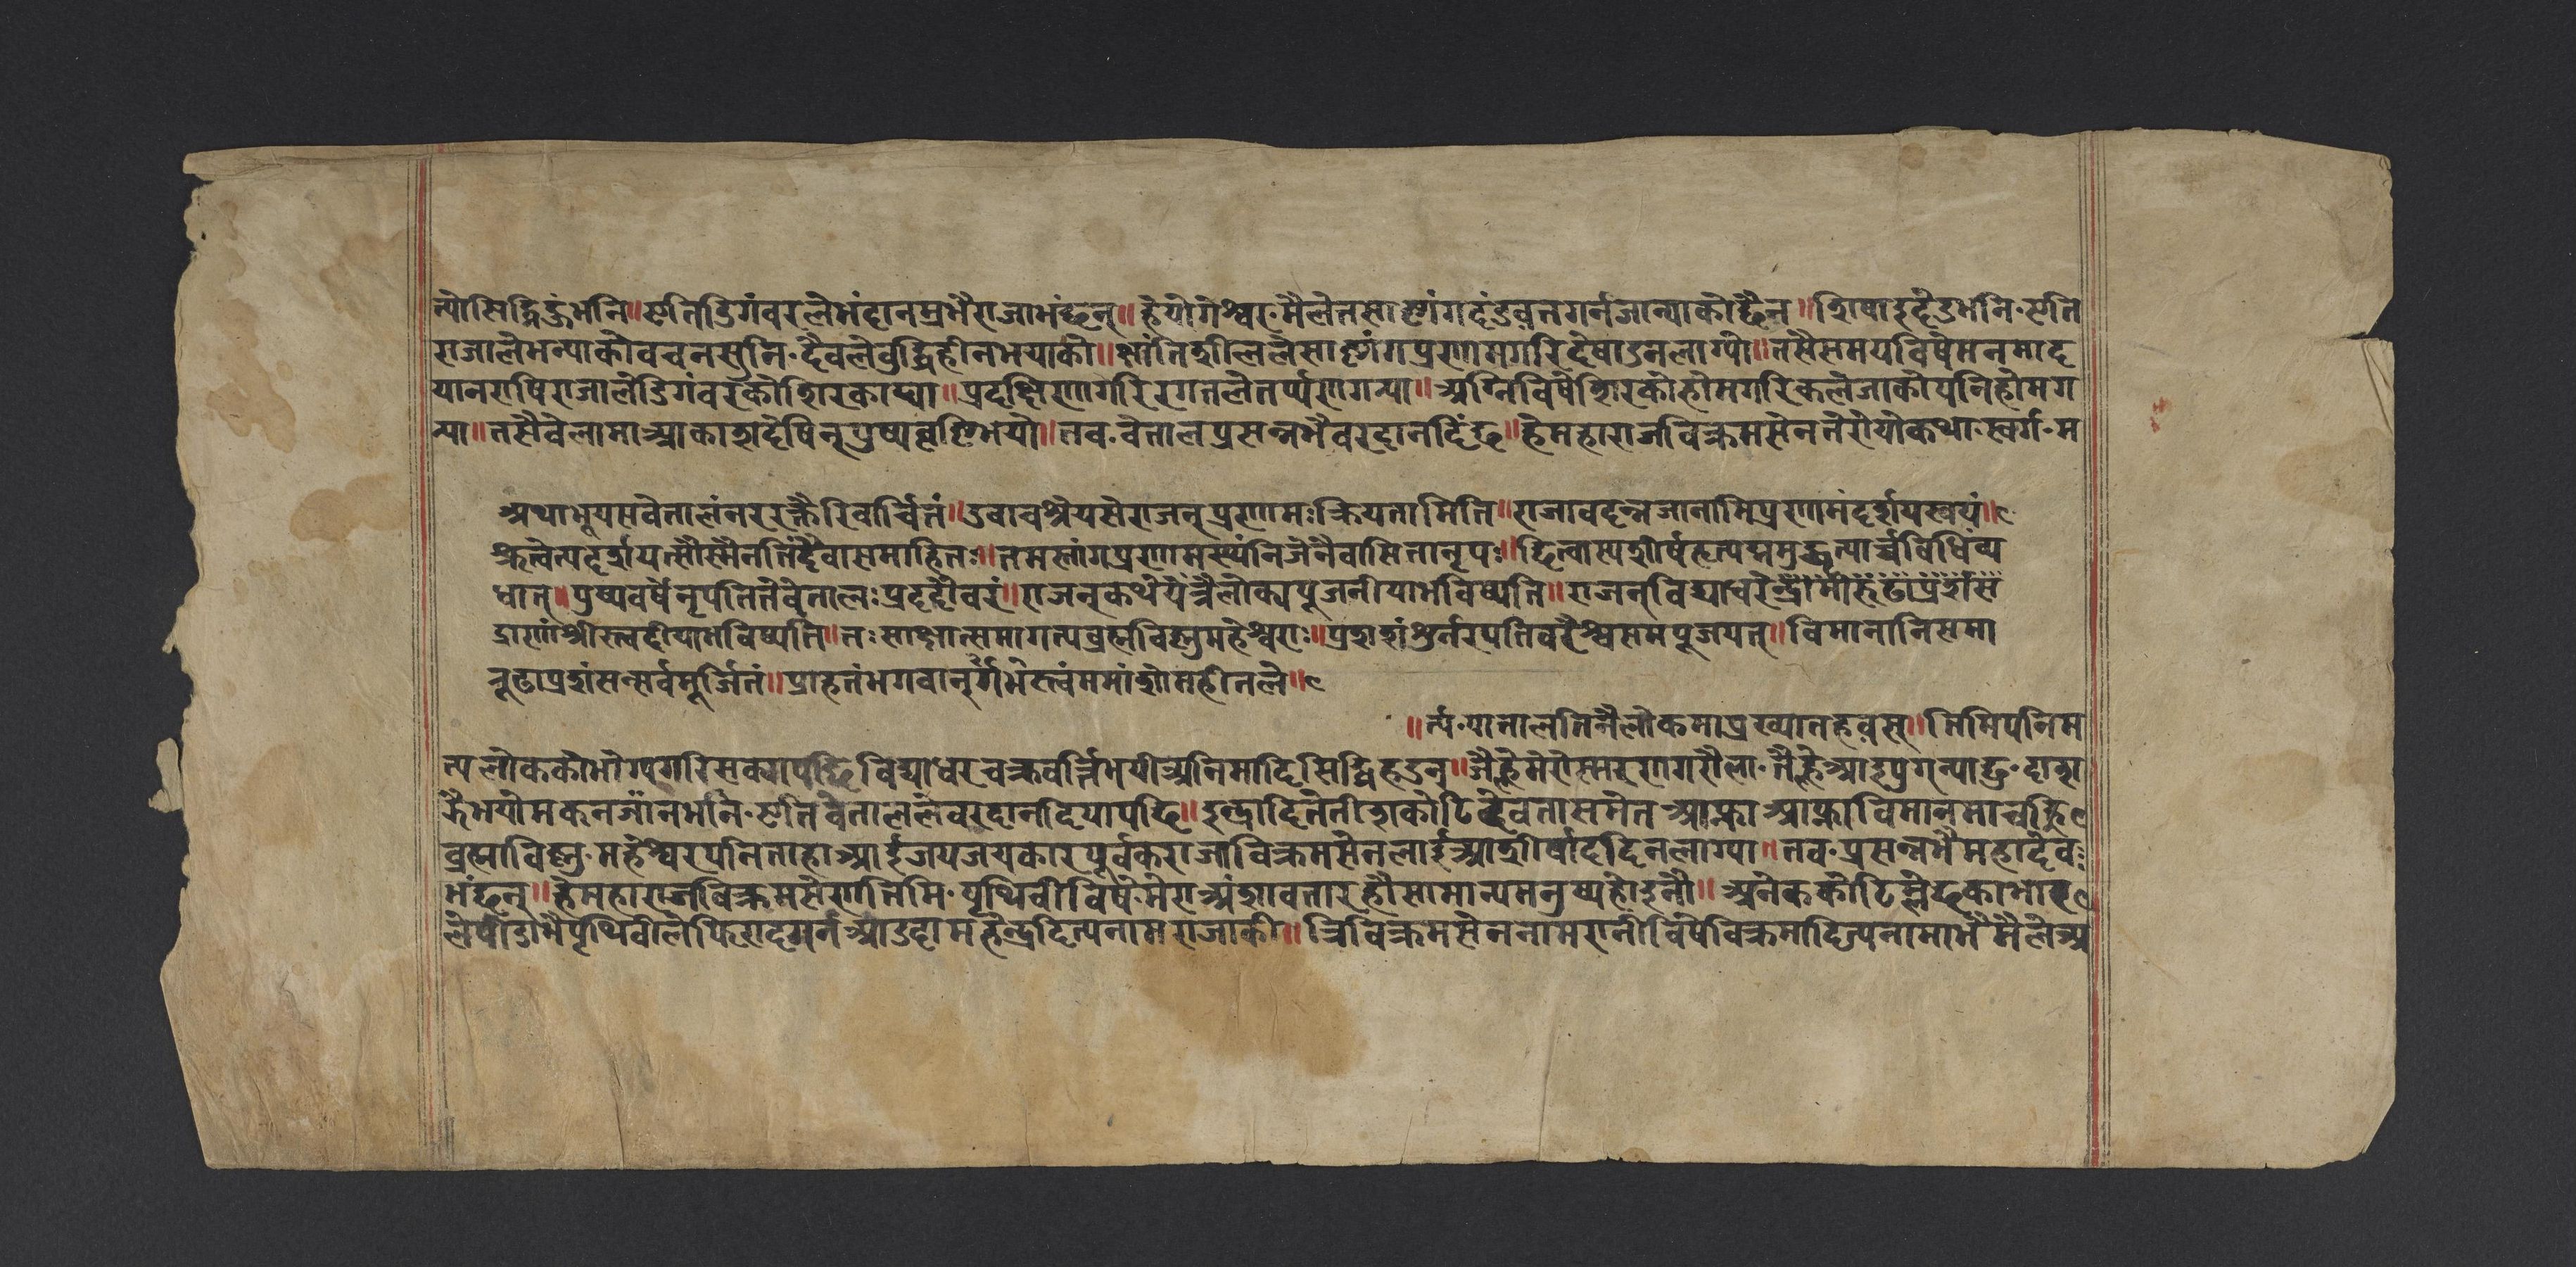 न्योसिद्धिहुंभनि॥एतिडिगंवरलेभंदानम्रभैराजाभंछन्॥हेयोगेश्वर॰मैलेतसाष्टांगदंडवतगर्नजान्याकोछैन॥शिषाइदेउभनि॰एति
राजालेभन्याकोवचनसुनि॰दैवलेवुद्धिहीनभयाको॥क्षांतिशीललेसाष्टांगप्रणामगरिदेषाउनलाग्यो॥तसैसमयविषेमनमाद
यानराषिराजालेडिगंवरकोशिरकाट्या॥प्रदक्षिणागरिरगतलेतर्प्पणगन्या॥अग्निविषेशिरकोहोमगरिकलेजाकोपनिहोमग
न्या॥तसैवेलामाआकाशदेषिन्पुष्पवृष्टिभयो॥तव॰वेतालप्रसन्नभैवरदानदिंछ॥हेमहाराजविक्रमसेनतेरोयोकथा॰स्वर्ग॰म
अथाभूयसवेतालंनररक्तैरिवार्चितं॥उवाचश्रेयसेराजन्प्रणामःक्रियतामिति॥राजावदन्नजानामिप्रणामंदर्शयस्वयं॥
धात्॥पुष्पवर्षेनृपतितेवेतालःप्रददौवरं॥राजन्कथेयंत्रैलोक्यपूजनीयाभविष्यति॥राजन्विद्याधरेन्द्रा
द्राणांश्रीस्त्वदीयाभविष्यति॥तःसाक्षात्समागत्यव्रह्मविष्णुमहेश्वराः॥प्रशशंशुर्नरपतिवरैश्चसमपूजयत्॥विमानानिसमा
नूढाप्रशंसन्सर्वमूर्जितं॥प्राहतंभगवान्र्गर्भस्त्वंममांशोमहीतले॥
॥र्त्य॰पातालतिनैलोकमाप्रख्यातहवस्॥तिमिपनिम
त्यलोककोभोग्यगरिसक्यापछिविद्याधरचक्रवर्त्तिभयीअनिमादिसिद्धिहउन्॥जैह्लेमेरोस्मरणगरौला॰तैह्लेआइपुगन्याछु॰दाश
झैभयोमकनजानभनि॰एतिवेताललेवरदानदियापछि॥इन्द्रादितेतीशकोटिदेवतासमेतआफ्नाआफ्नाविमानमाचढि
व्रह्माविष्णु॰महेश्वरपनिताहाआईजयजयकारपूर्वकराजाविक्रमसेनलाईआशीर्षाददिनलाग्या॥तव॰प्रसन्नभैमहादेव
भंछन्॥हेमहाराजविक्रमसेणतिमि॰पृथिवीविषेमेराअंशावतारहौसामान्यमनुष्यहोइनौ॥अनेककोटिम्लेछकाभार
लेपीडाभैपृथिवीलेफिरादगर्नआउदामहेन्द्रदित्यनामराजाकी॥त्रिविक्रमसेननामरानीविषेविक्रमादित्यनामाभैमैलेअ